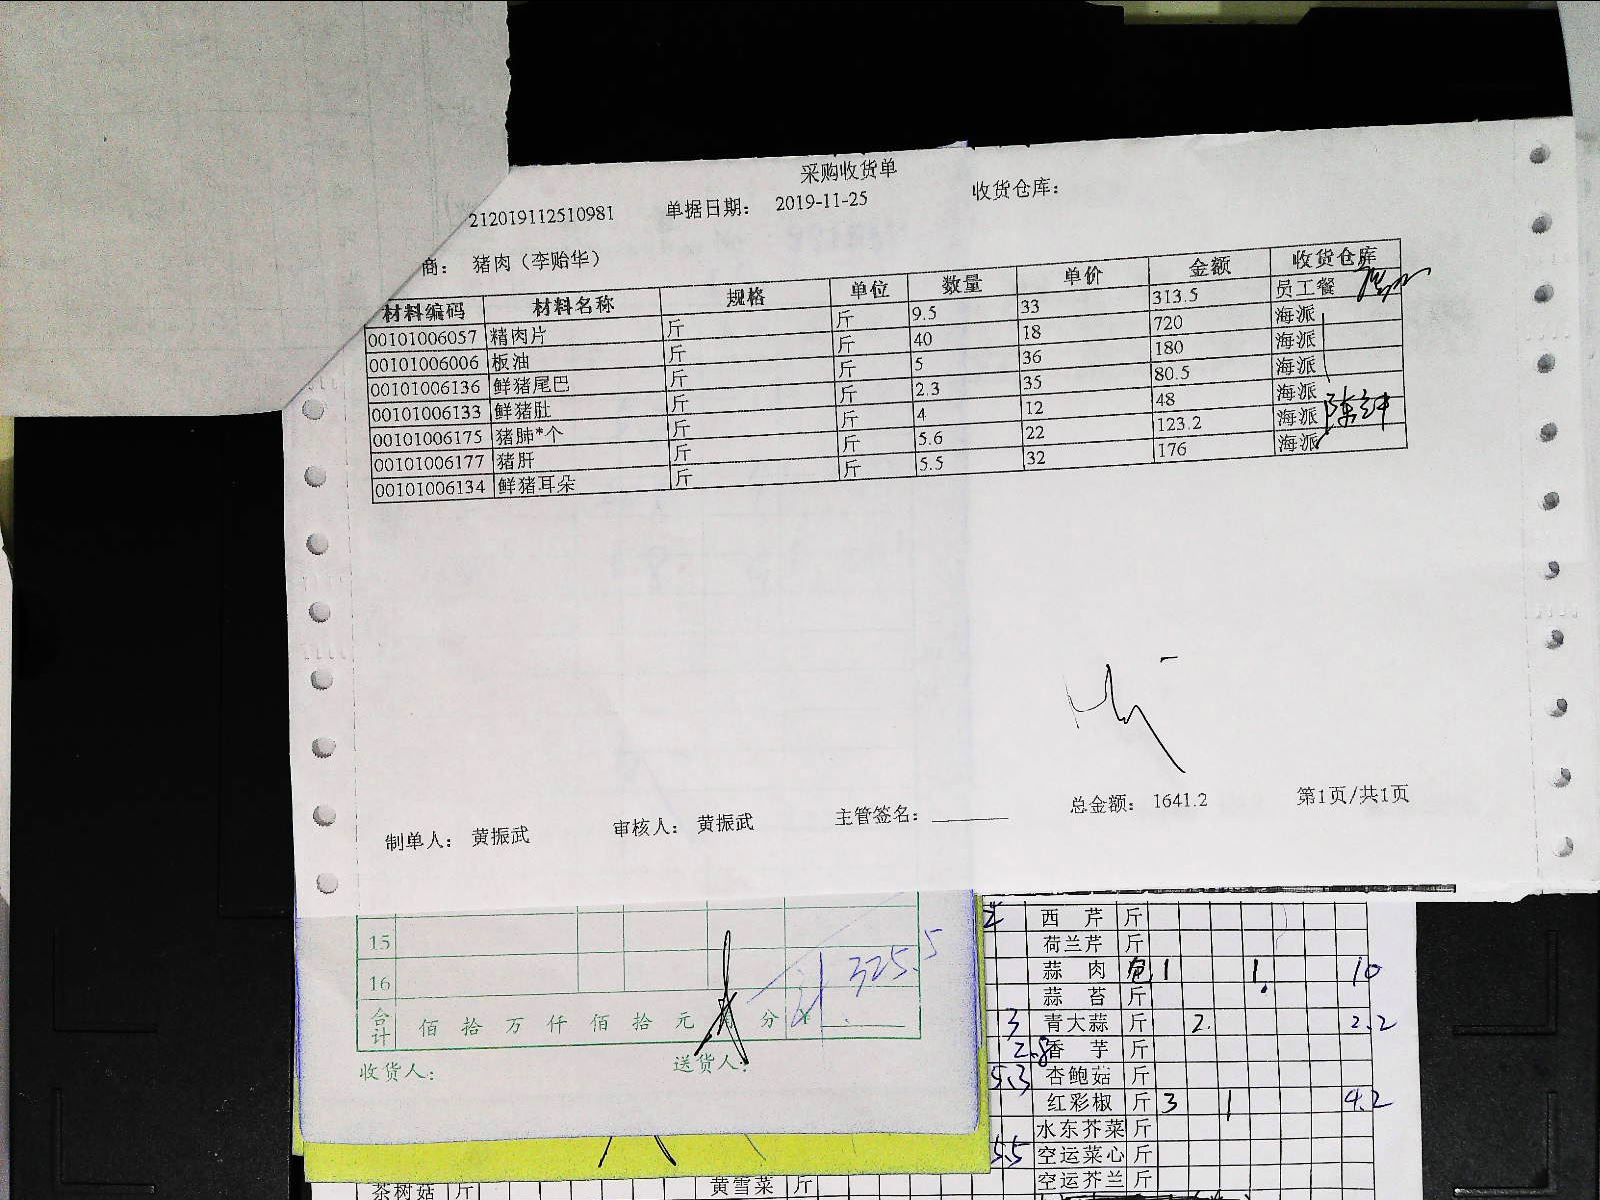 采购收货单
212019112510981 单据日期: 2019-11-25 收货仓库:
商: 猪肉（李贻华）
材料编码 材料名称 规格 单位 数量 单价 金额 收货仓库
00101006057 精肉片 斤 斤 9.5 33 313.5 员工餐
00101006006 板油 斤 斤 40 18 720 海派
00101006136 鲜猪尾巴 斤 斤 5 36 180 海派
00101006133 鲜猪肚 斤 斤 2.3 35 80.5 海派
00101006175 猪肺*个 斤 斤 4 12 48 海派
00101006177 猪肝 斤 斤 5.6 22 123.2 海派
00101006134 鲜猪耳朵 斤 斤 5.5 32 176 海派
制单人: 黄振武 审核人: 黄振武 主管签名: 总金额: 1641.2 第1页/共1页
15
16 325.5
合计 佰 拾 万 仟 佰 拾 元 分 ¥
收货人: 送货人:
西芹 斤
荷兰芹 斤
蒜肉 包 1 1. 10
蒜苔 斤
3 青大蒜 斤 2. 2.2
2.8 香芋 斤
5.3 杏鲍菇 斤
红彩椒 斤 3 1 4.2
水东芥菜 斤
5.5 空运菜心 斤
茶树菇 斤 黄雪菜 斤 空运芥兰 斤